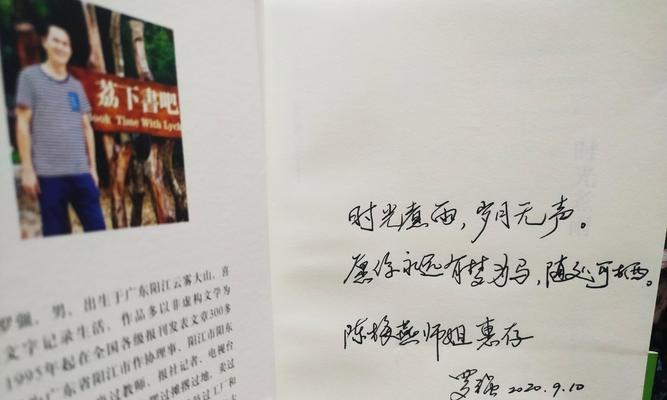 荔下書吧
Book Time With Lychee
罗强，男，出生于广东阳江云雾大山，喜
文字记录生活，作品多以非虚构文学为
1995年起在全国各级报刊发表文章300多
广东省阳江市作协理事、阳江市阳东
过教师、报社记者、电视台
摆过摊搭过地、卖过
时光煮雨，岁月无声。
愿你永远有梦为马，随处可栖。
陈梅燕师姐惠存
罗强 2020.9.10